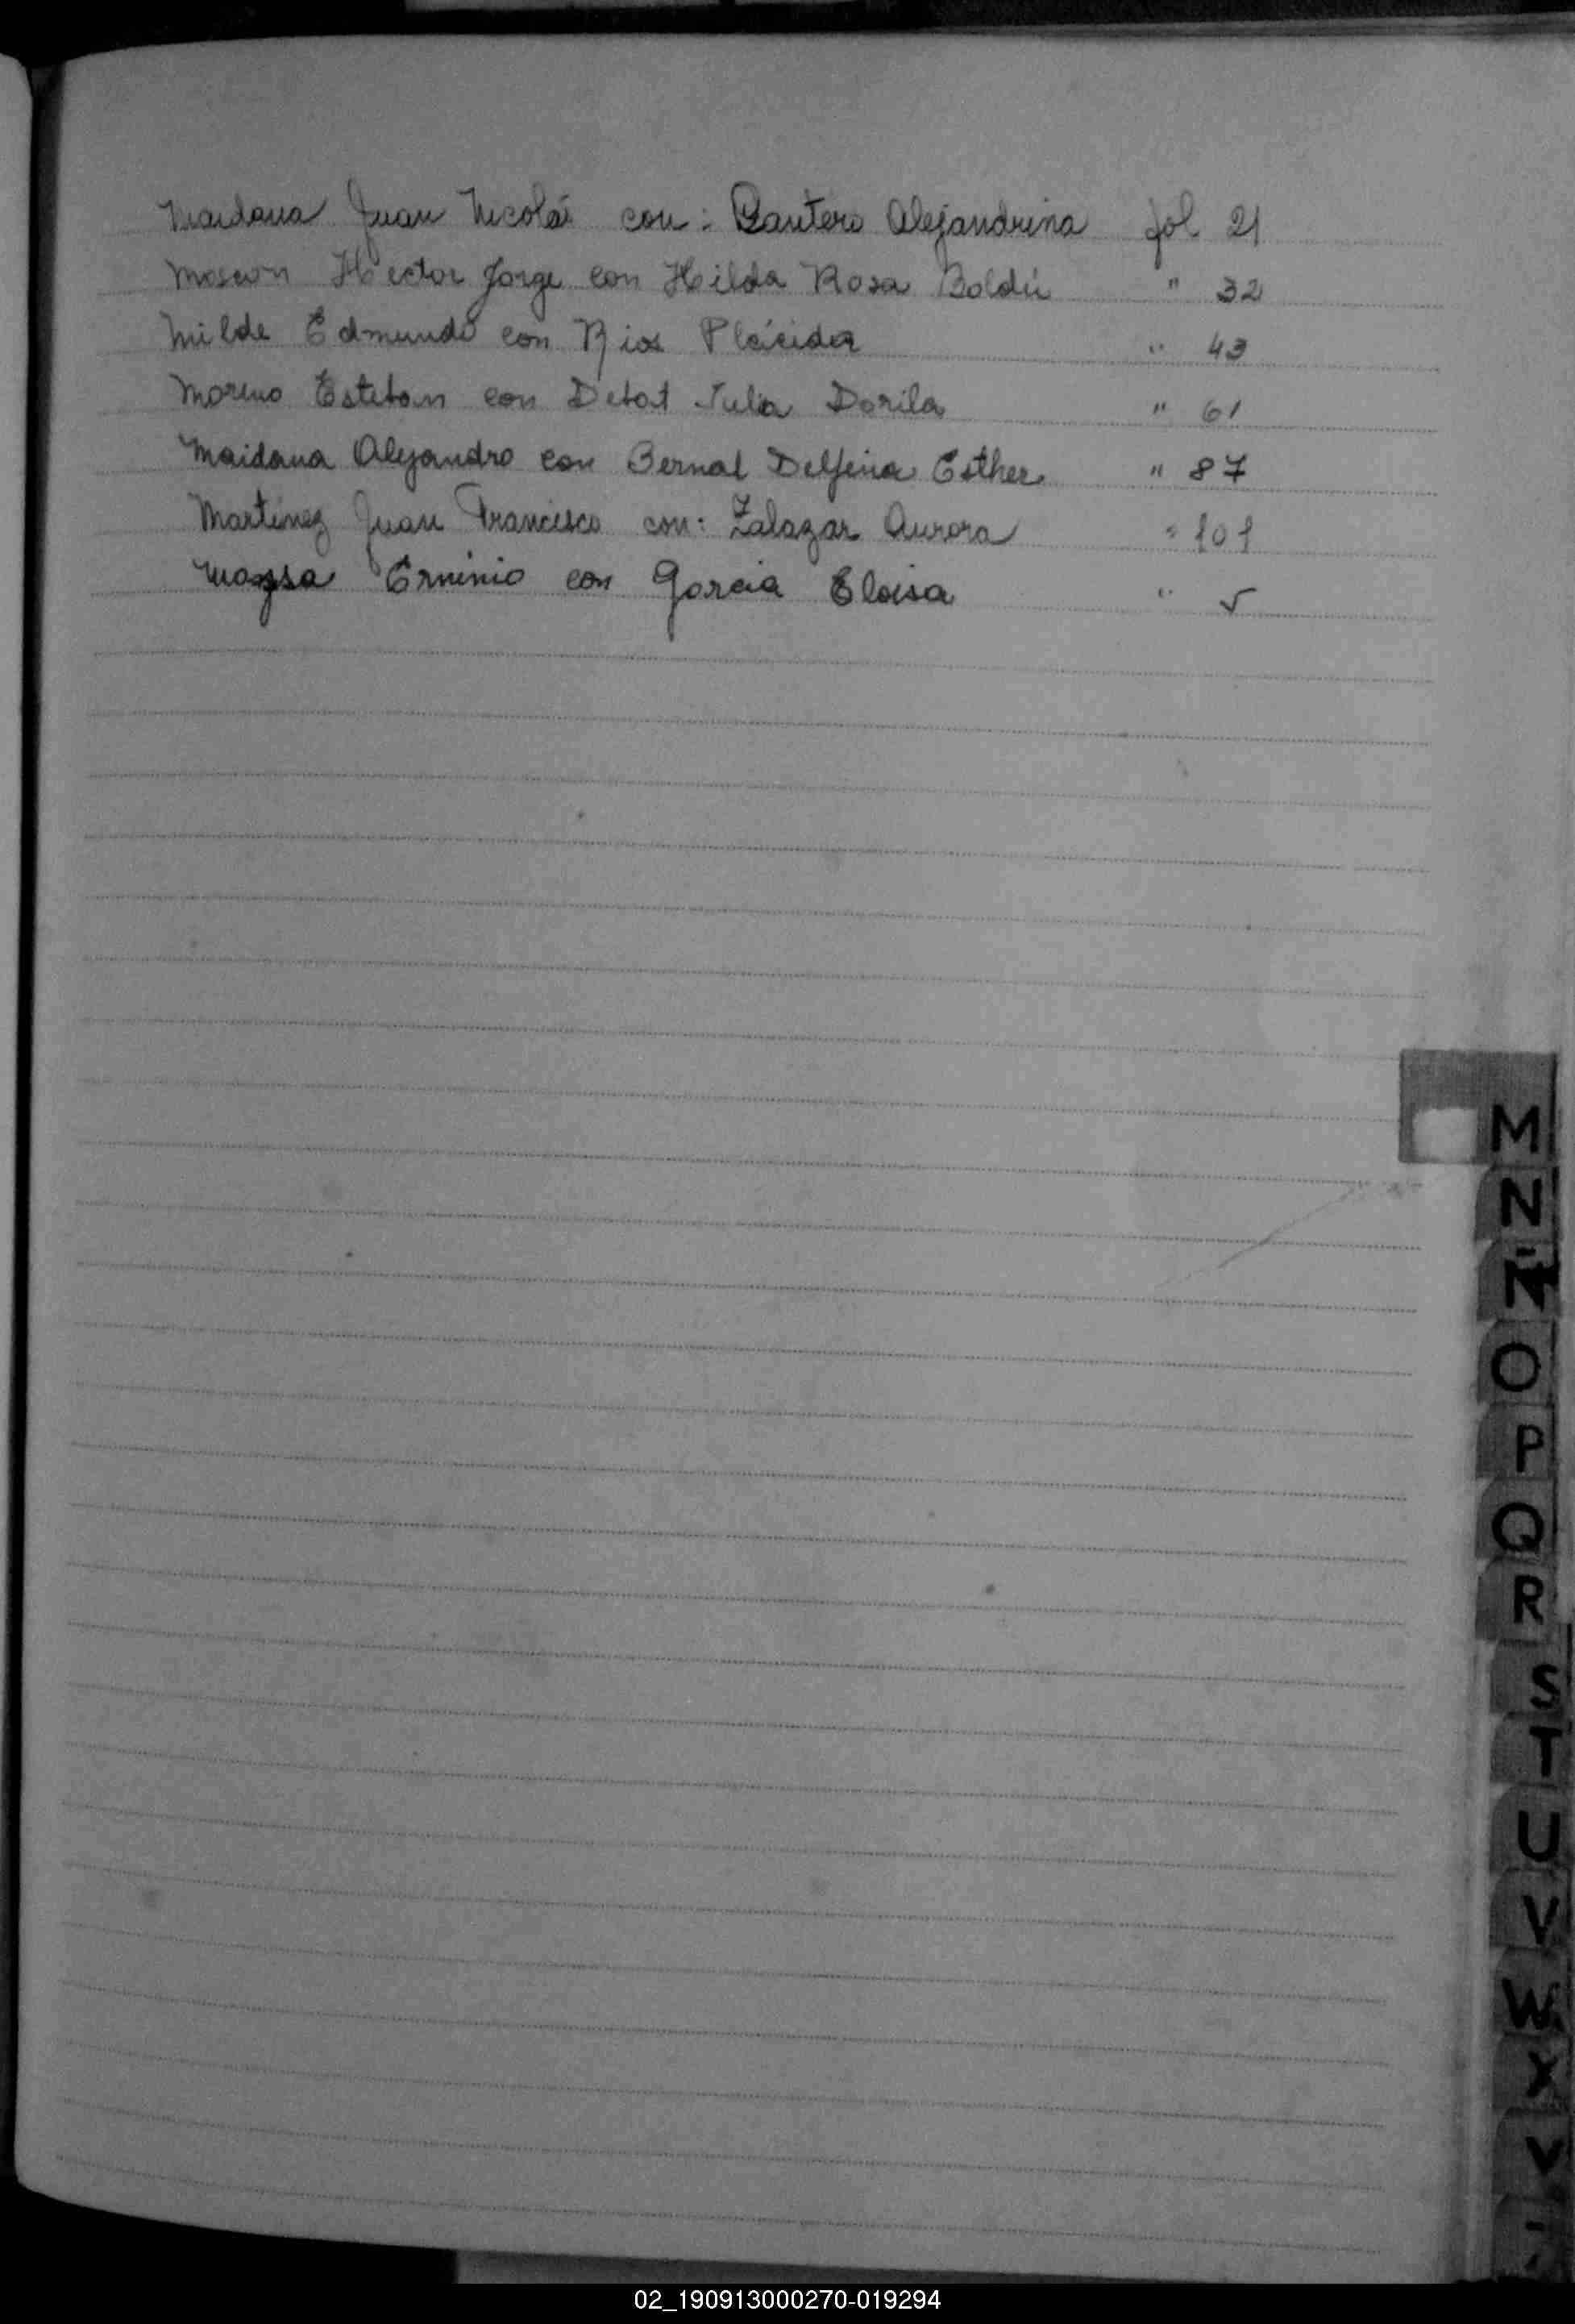 Maidana Juan Nicolás con: Santero Alejandrina fol 21
Moscon Hector Jorge con Hilda Rosa Boldú " 32
Milde Edmundo con Rios Plácida " 43
Moreno Esteban con Detat Julia Dorila " 61
Maidana Alejandro con Bernal Delfina Esther " 87
Martínez Juan Francisco con: Zalazar Aurora " 101
Erminio con Garcia Eloisa " 5
M
N
Ñ
O
P
Q
R
S
T
U
V
W
X
Y
02_190913000270-019294